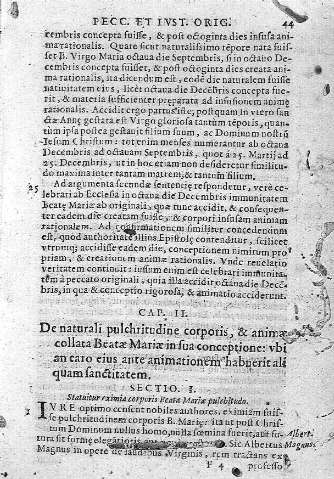 PECC. ET IVST. ORIG. 44
cembris concepta fuisse, & post octoginta dies infusa ani
ma rationalis. Quare sicut naturalissimo tẽpore nata fuis-
set B. Virgo Maria octaua die Septembris, si in octauo De-
cembris concepta fuisset, & post octoginta dies creata ani-
ma rationalis, ita dicendum est, eodẽ die naturalem fuisse
natiuitatem eius, licèt octaua die Decẽbris concepta fue-
rit, & materia sufficienter præparata ad infusionem animæ
rationalis. Accidit ergo partus iste, postquam in vtero san-
ctæ Annę gestata est Virgo gloriosa tantum tẽporis, quan-
tum ipsa postea gestauit filium suum, ac Dominum nostrũ
Iesum Christum: tot enim menses numerantur ab octaua
Decembris ad octauam Septembris, quot à 25. Martij ad
25. Decembris, vt in hoc etiam non desideretur similitu-
do maxima inter tantam matrem, & tantum filium.
25 Ad argumenta secundæ sentẽtię respondetur, verè ce-
lebrari ab Ecclesia in octaua die Decẽbris immunitatem
Beatę Mariæ ab originali, quæ tunc accidit, & consequen-
ter eadem die creatam fuisse, & corpori infusam animam
rationalem. Ad confirmationem similiter concedendum
est, quod authoritate illius Epistolę contenditur, scilicet
vtrumq; accidisse eadem die, conceptionem nimirum pro-
priam, & creationem animæ rationalis. Vnde reuelatio
veritatem continuit: ipsum enim est celebrari immunita-
tem à peccato originali, quia illa accidit octaua die Decẽ-
bris, in qua & conceptio rigorosa, & animatio acciderunt.
CAP. II.
De naturali pulchritudine corporis, & animæ
collata Beatæ Mariæ in sua conceptione: vbi
an caro eius ante animationem habuerit ali
quam sanctitatem.
SECTIO. I.
Statuitur eximia corporis Beatæ Mariæ pulchitudo.
1 IVRE optimo censent nobiles authores, eximiam fuis-
se pulchritudinem corporis B. Mariæ, ita vt post Chris-
tum Dominum nullus homo, nulla fœmina fuerit, aut fu-
tura sit formę elegantioris Sic Albertus
Albert.
Magnus in opere de laudibus Virginis, rem tractans ex
Magnus.
F 4 professo